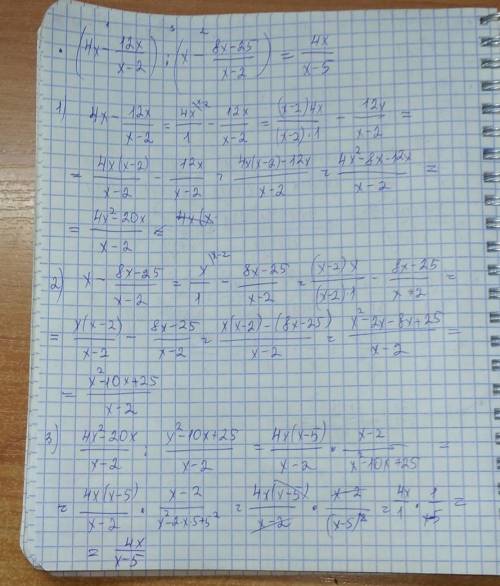 (4x - 12x/(x-2)) : (x - (8x-25)/(x-2)) = 4x/(x-5)
1) 4x - 12x/(x-2) = 4x/1 - 12x/(x-2) = (x-2)4x/((x-2)·1) - 12x/(x-2) =
= 4x(x-2)/(x-2) - 12x/(x-2) = (4x(x-2)-12x)/(x-2) = (4x²-8x-12x)/(x-2) =
= (4x²-20x)/(x-2)
2) x - (8x-25)/(x-2) = x/1 - (8x-25)/(x-2) = (x-2)x/((x-2)·1) - (8x-25)/(x-2) =
= x(x-2)/(x-2) - (8x-25)/(x-2) = (x(x-2)-(8x-25))/(x-2) = (x²-2x-8x+25)/(x-2) =
= (x²-10x+25)/(x-2)
3) (4x²-20x)/(x-2) : (x²-10x+25)/(x-2) = 4x(x-5)/(x-2) · (x-2)/(x²-10x+25) =
= 4x(x-5)/(x-2) · (x-2)/(x²-2·x·5+5²) = 4x(x-5)/(x-2) · (x-2)/(x-5)² = 4x/1 · 1/(x-5) =
= 4x/(x-5)